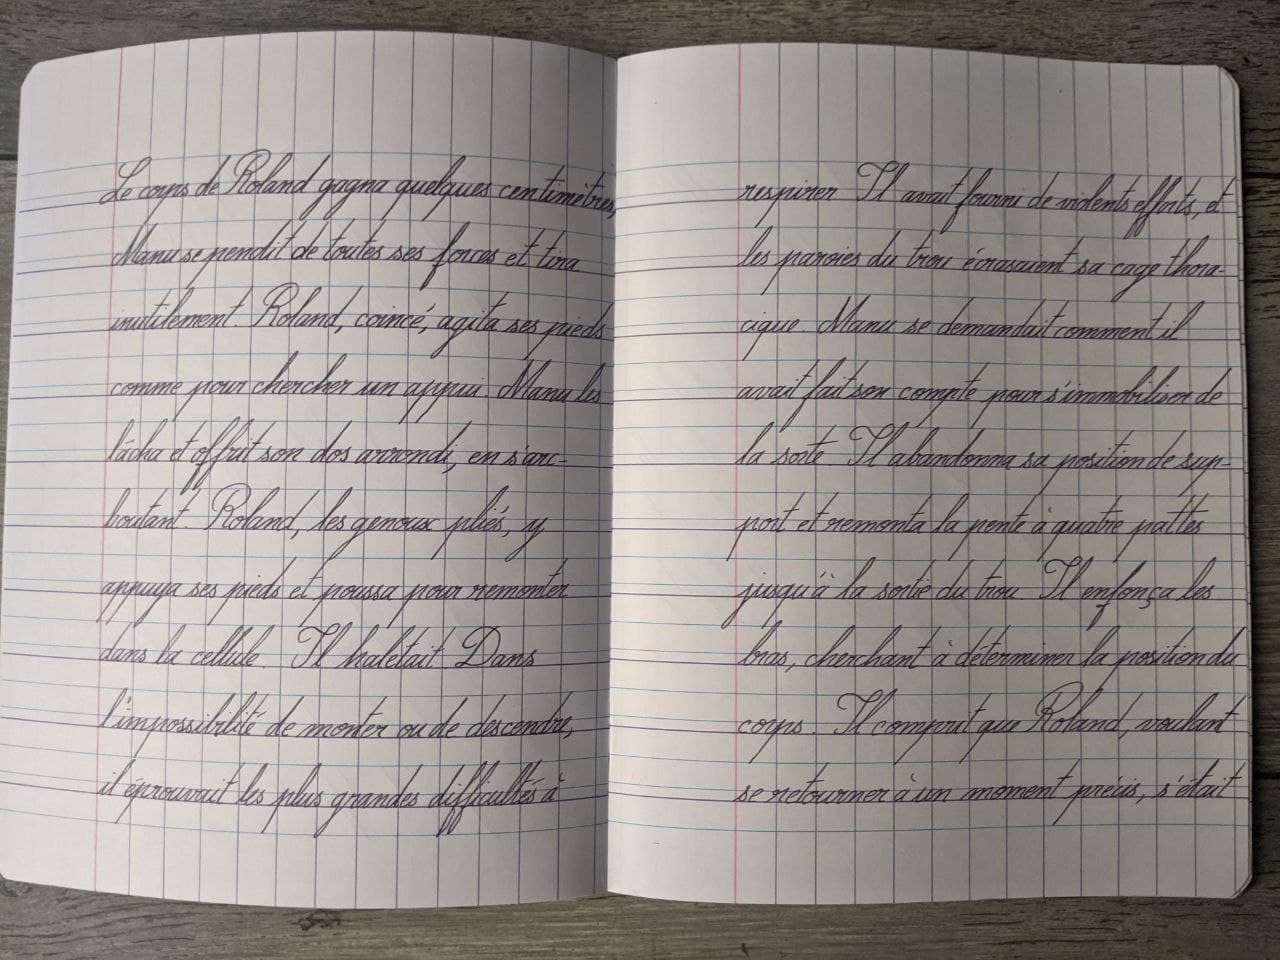 Le corps de Roland gagna quelques centimètres,
Manu se pendit de toutes ses forces et tira
inutilement. Roland, coincé, agita ses pieds
comme pour chercher un appui. Manu les
lâcha et offrit son dos arrondi, en s'arc-
boutant. Roland, les genoux pliés, y
appuya ses pieds et poussa pour remonter
dans la cellule. Il haletait. Dans
l'impossibilité de monter ou de descendre,
il éprouvait les plus grandes difficultés à
respirer. Il avait fourni de violents efforts, et
les paroies du trou écrasaient sa cage thora-
cique. Manu se demandait comment il
avait fait son compte pour s'immobiliser de
la sorte. Il abandonna sa position de sup-
port et remonta la pente à quatre pattes
jusqu'à la sortie du trou. Il enfonça les
bras, cherchant à déterminer la position du
corps. Il comprit que Roland, voulant
se retourner à un moment précis, s'était